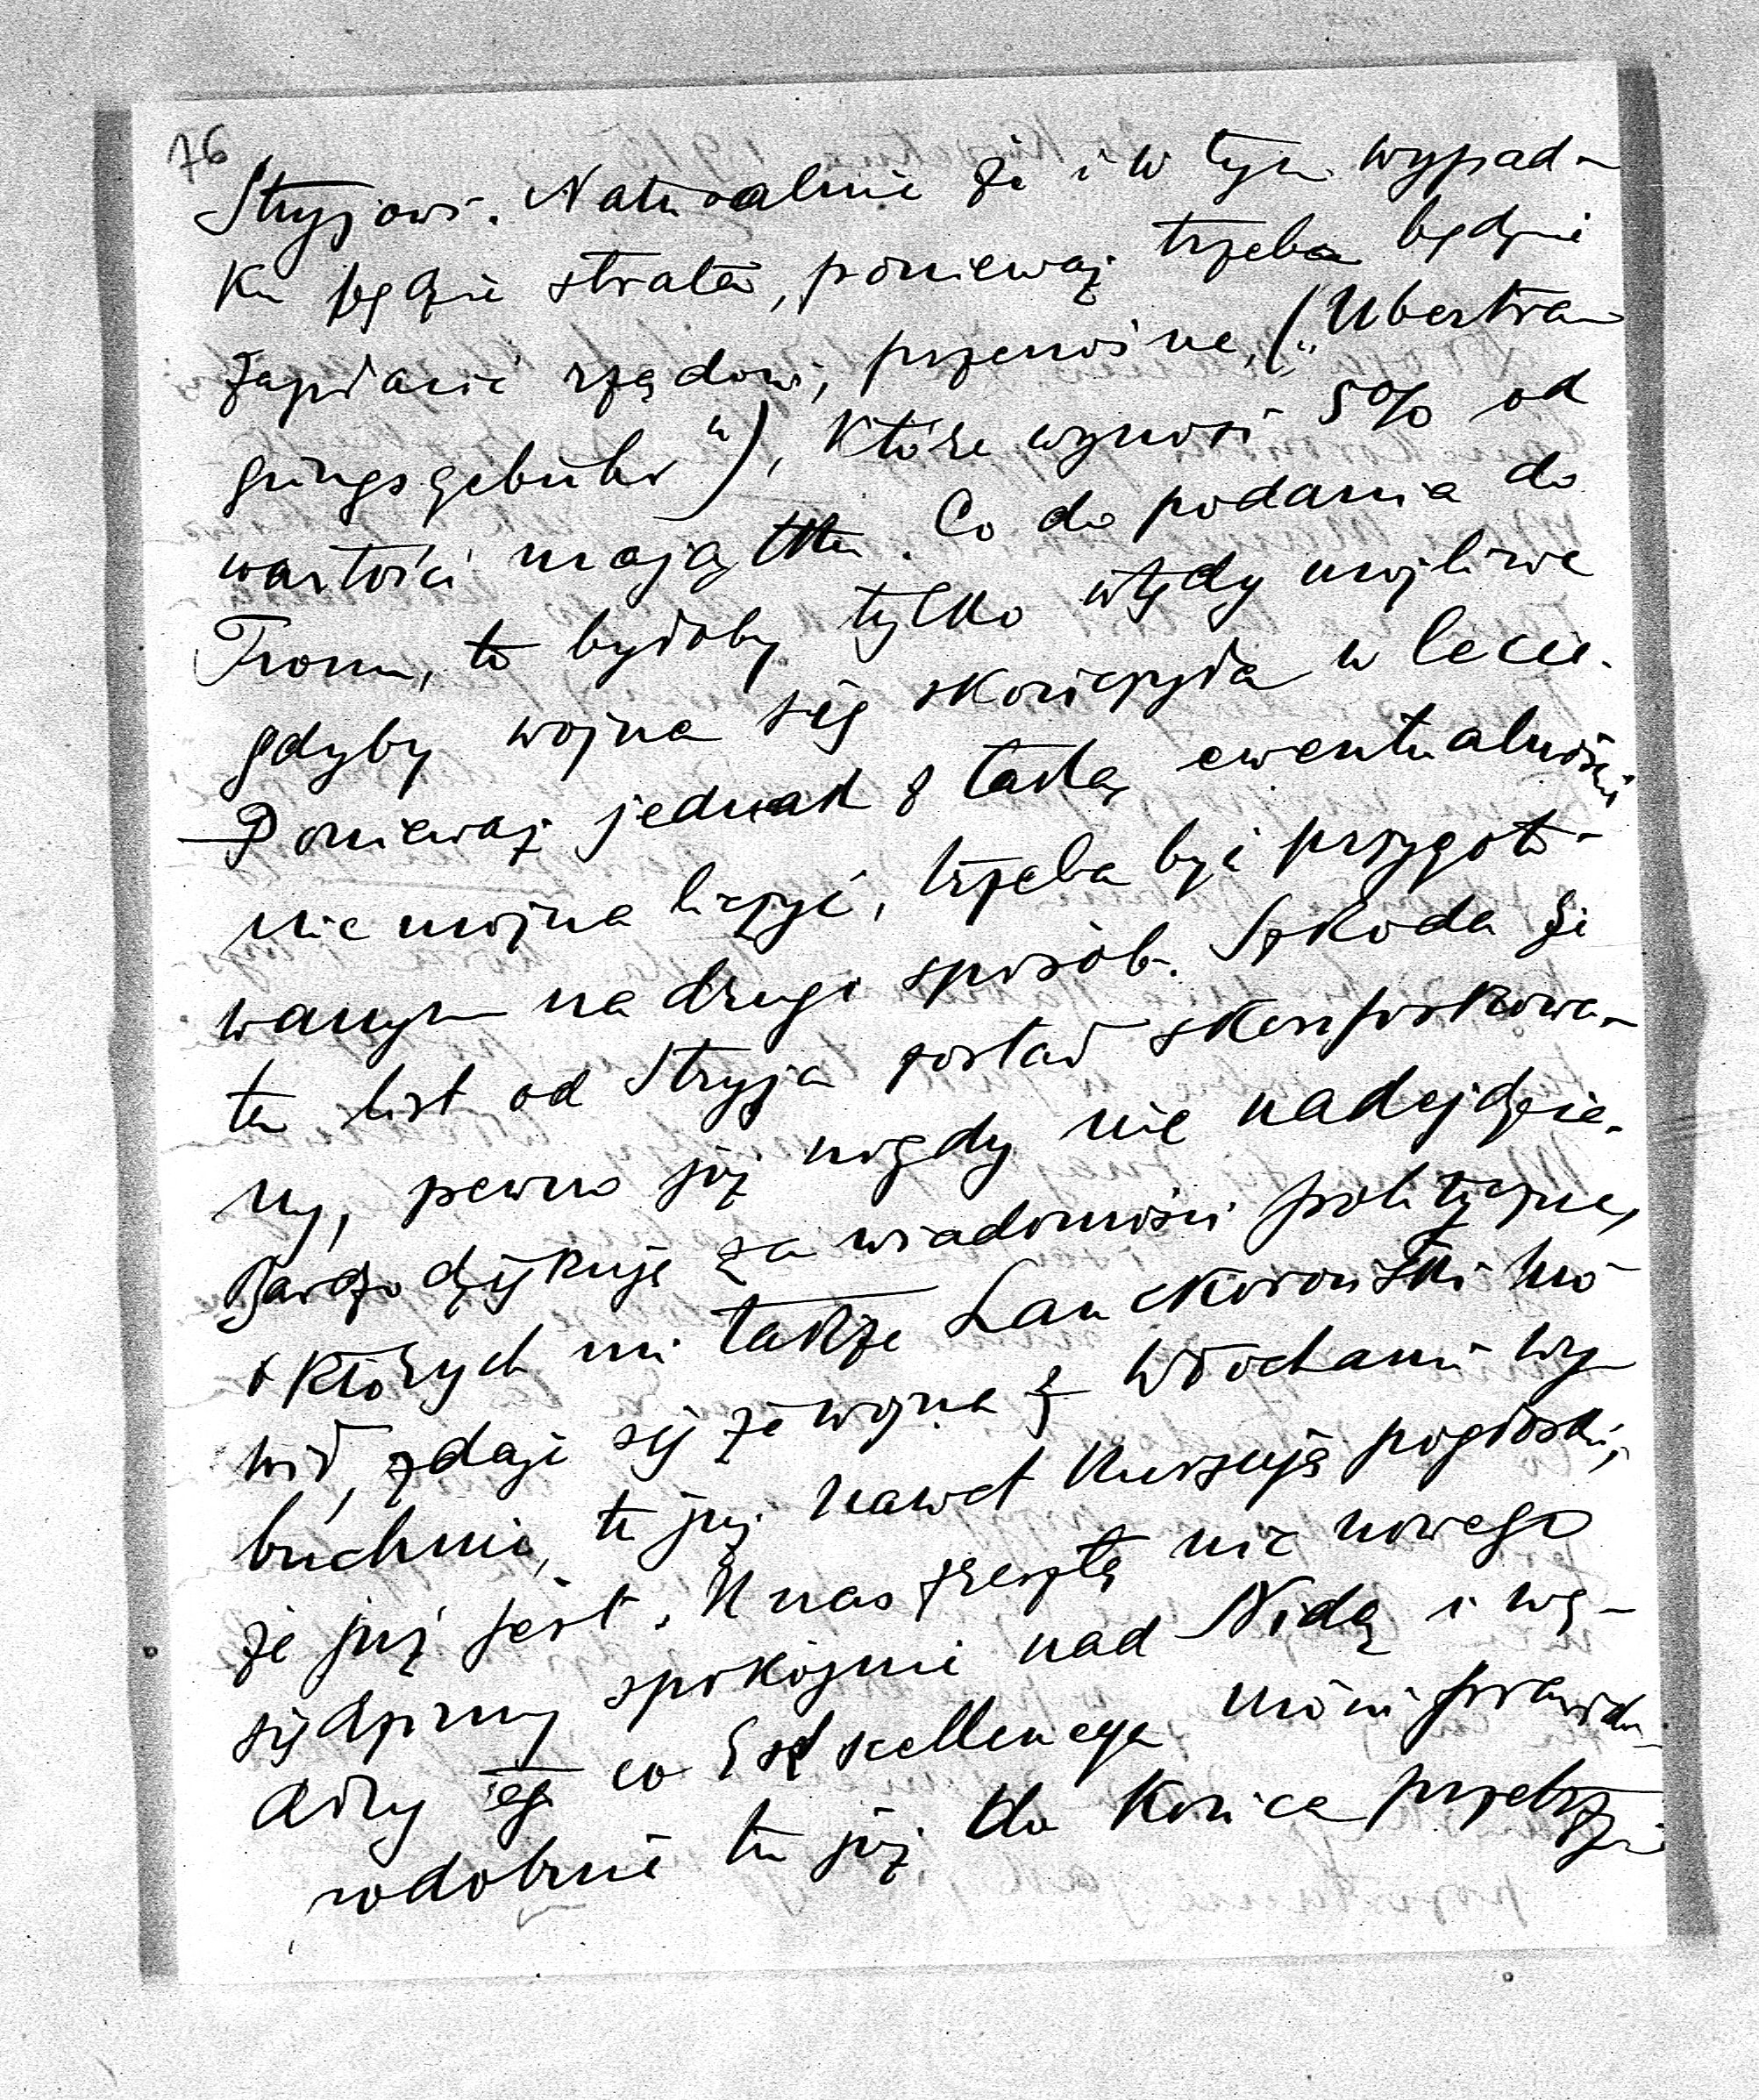 76
Stryjowi. Naturalnie że i w tym wypad-
ku będzie strata, ponieważ trzeba będzie
zapłacić rządowi, przenośne, („Ubertra-
gungsgebühr"), które wynosi 5% od
wartości majątku. Co do podania do
Tronu, to byłoby tylko wtedy możliwe
gdyby wojna się skończyła w lecie.
Ponieważ jednak z taką ewentualnością
nie można liczyć, trzeba być przygoto-
wanym na drugi sposób. Szkoda że
ten list od Stryja został skonfiskowa-
ny, pewno już nigdy nie nadejdzie.
Bardzo dziękuję za wiadomości polityczne,
o których mi także Lanckoroński mó-
wił, zdaje się że wojna z Włochami wy-
buchnie, tu już nawet kursują pogłoski,
że już jest. U nas zresztą nic nowego
siedzimy spokojnie nad Nidą i we-
dług co Ekscellencya mówi prawdo-
podobnie tu już do końca